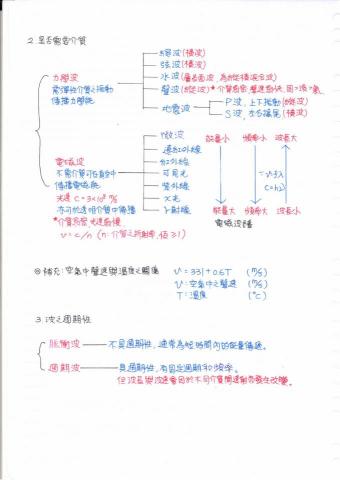 2. 是否需要介質
力學波
需彈性介質之振動
傳播力學能
繩波(橫波)
弦波(橫波)
水波(屬表面波, 為縱橫混合波)
聲波(縱波)*介質愈密, 聲速愈快, 固>液>氣
地震波
P波, 上下振動(縱波)
S波, 左右搖尾(橫波)
電磁波
不需介質可在真空中
傳播電磁能
光速 C=3×10⁸ m/s
亦可於透明介質中傳播
*介質愈密 光速愈慢
v=c/n (n:介質之折射率, 恆≥1)
微波
遠紅外線
紅外線
可見光
紫外線
X光
γ射線
能量小 頻率小 波長大
能量大 頻率大 波長小
電磁波譜
◎補充:空氣中聲速與溫度之關係
V=331+0.6T (m/s)
V:空氣中之聲速 (m/s)
T:溫度 (°C)
3. 波之週期性
脈衝波 — 不具週期性, 通常為短時間內的能量傳遞。
週期波 — 具週期性, 有固定週期和頻率。
但波長與波速會因於不同介質間運動而發生改變。